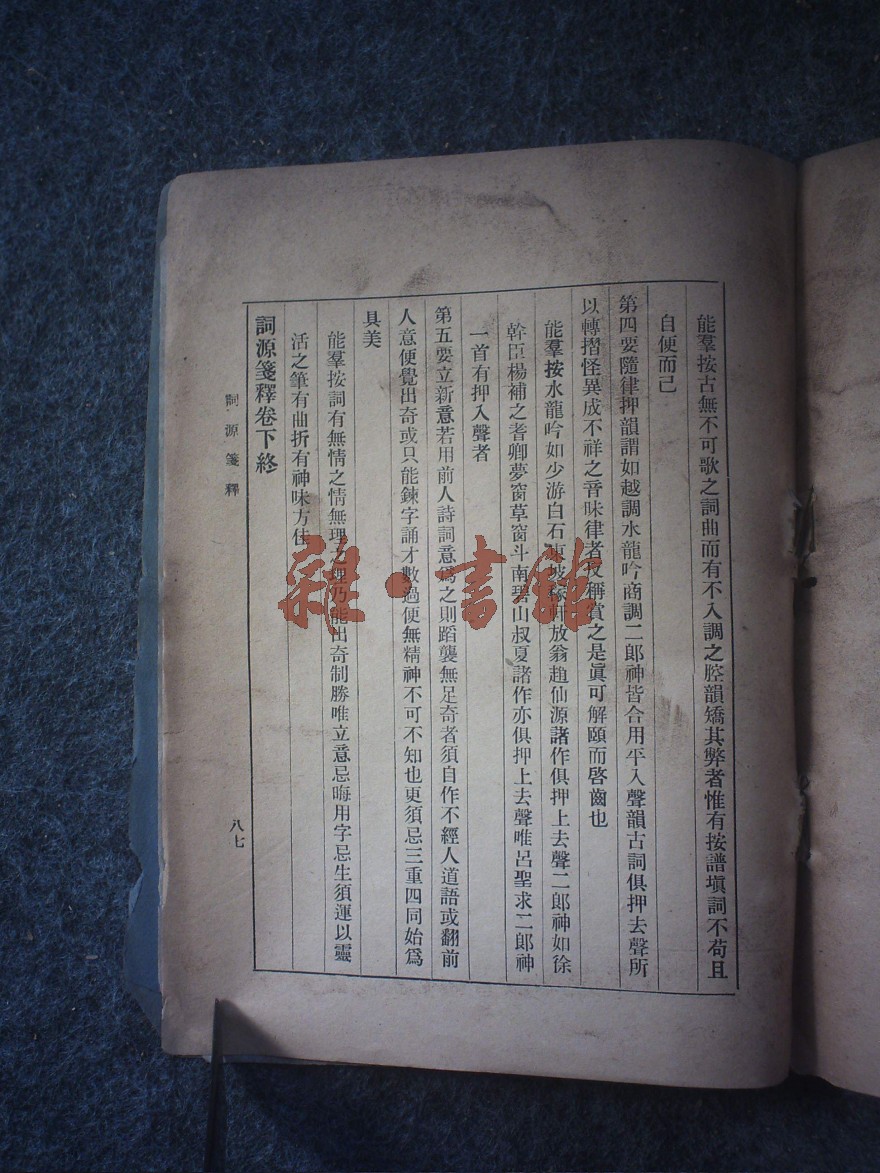 能羣按古無不可歌之詞曲而有不入調之腔韻矯其弊者惟有按譜塡詞不苟且
自便而已
第四要隨律押韻謂如越調水龍吟商調二郎神皆合用平入聲韻古詞俱押去聲所
以轉摺怪異成不祥之音昧律者反稱賞之是眞可解頤而啓齒也
能羣按水龍吟如少游白石東坡稼軒放翁趙仙源諸作俱押上去聲二郎神如徐
幹臣楊補之耆卿夢窗草窗斗南碧山叔夏諸作亦俱押上去聲唯呂聖求二郎神
一首有押入聲者
第五要立新意若用前人詩詞意爲之則蹈襲無足奇者須自作不經人道語或翻前
人意便覺出奇或只能鍊字誦才數過便無精神不可不知也更須忌三重四同始爲
具美
能羣按詞有無情之情無理之理乃能出奇制勝唯立意忌晦用字忌生須運以靈
活之筆有曲折有神味方佳
詞源箋釋卷下終
詞源箋釋
八七
雜·書館